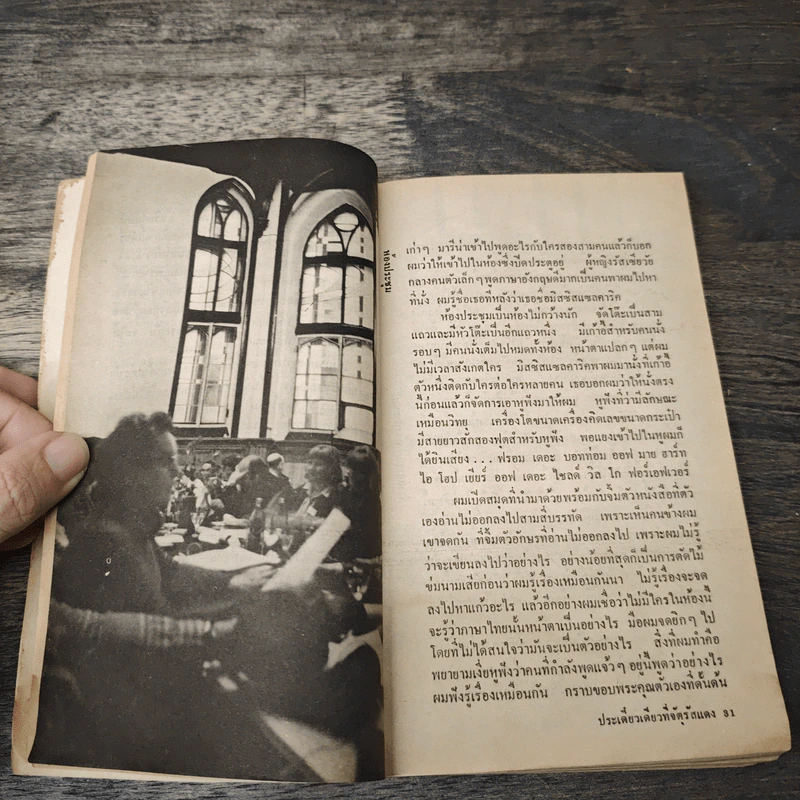 ห้องประชุม
เก่าๆ มารีน่าเข้าไปพูดอะไรกับใครสองสามคนแล้วก็บอก
ผมว่าให้เข้าไปในห้องซึ่งปิดประตูอยู่ ผู้หญิงรัสเซียวัย
กลางคนตัวเล็กๆ พูดภาษาอังกฤษดีมากเป็นคนพาผมไปหา
ที่นั่ง ผมรู้ชื่อเธอทีหลังว่าเธอชื่อมิสซิสแซลคาริค
ห้องประชุมเป็นห้องไม่กว้างนัก จัดโต๊ะเป็นสาม
แถวและมีหัวโต๊ะเป็นอีกแถวหนึ่ง มีเก้าอี้สำหรับคนนั่ง
รอบๆ มีคนนั่งเต็มไปหมดทั้งห้อง หน้าตาแปลกๆ แต่ผม
ไม่มีเวลาสังเกตใคร มิสซิสแซลคาริคพาผมมานั่งที่เก้าอี้
ตัวหนึ่งติดกับใครต่อใครหลายคน เธอบอกผมว่าให้นั่งตรง
นี้ก่อนแล้วก็จัดการเอาหูฟังมาให้ผม หูฟังที่ว่ามีลักษณะ
เหมือนวิทยุ เครื่องโตขนาดเครื่องคิดเลขขนาดกระเป๋า
มีสายยาวสักสองฟุตสำหรับหูฟัง พอแยงเข้าไปในหูผมก็
ได้ยินเสียง ... ฟรอม เดอะ บอทท่อม ออฟ มาย ฮาร์ท
ไอ โฮป เยียร์ ออฟ เดอะ ไชลด์ วิล โก ฟอร์เอฟเวอร์
ผมเปิดสมุดที่นำมาด้วยพร้อมกับจิ้มตัวหนังสือที่ตัว
เองอ่านไม่ออกลงไปสามสี่บรรทัด เพราะเห็นคนข้างผม
เขาจดกัน ที่จิ้มตัวอักษรที่อ่านไม่ออกลงไป เพราะผมไม่รู้
ว่าจะเขียนลงไปว่าอย่างไร อย่างน้อยที่สุดก็เป็นการตัดไม้
ข่มนามเสียก่อนว่าผมรู้เรื่องเหมือนกันนา ไม่รู้เรื่องจะจด
ลงไปหาแก้วอะไร แล้วอีกอย่างผมเชื่อว่าไม่มีใครในห้องนี้
จะรู้ว่าภาษาไทยนั้นหน้าตาเป็นอย่างไร มือผมจดยิกๆ ไป
โดยที่ไม่ได้สนใจว่ามันจะเป็นตัวอย่างไร สิ่งที่ผมทำคือ
พยายามเงี่ยหูฟังว่าคนที่กำลังพูดแจ้วๆ อยู่นี้พูดว่าอย่างไร
ผมฟังรู้เรื่องเหมือนกัน กราบขอบพระคุณตัวเองที่ดั้นด้น
ประเดี๋ยวเดียวที่จัตุรัสแดง 31